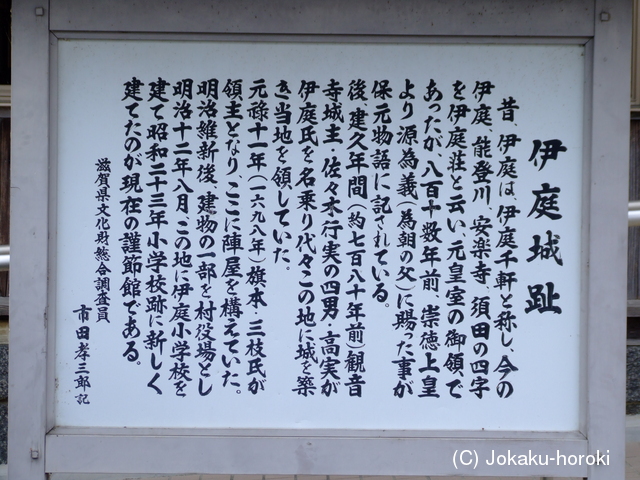 伊庭城趾
昔、伊庭は、伊庭千軒と称し、今の
伊庭、能登川、安楽寺、須田の四字
を伊庭荘と云い、元皇室の御領で
あったが、八百十数年前、崇徳上皇
より源為義(為朝の父)に賜った事が
保元物語に記されている。
後、建久年間(約七百八十年前)観音
寺城主・佐々木行実の四男・高実が
伊庭氏を名乗り代々この地に城を築
き当地を領していた。
元禄十一年(一六九八年)旗本・三枝氏が
領主となり、ここに陣屋を構えていた。
明治維新後、建物の一部を村役場とし
明治十二年八月、この地に伊庭小学校を
建て昭和二十三年小学校跡に新しく
建てたのが現在の謹節館である。
滋賀県文化財総合調査員
市田孝三郎記
(C) Jokaku-horoki